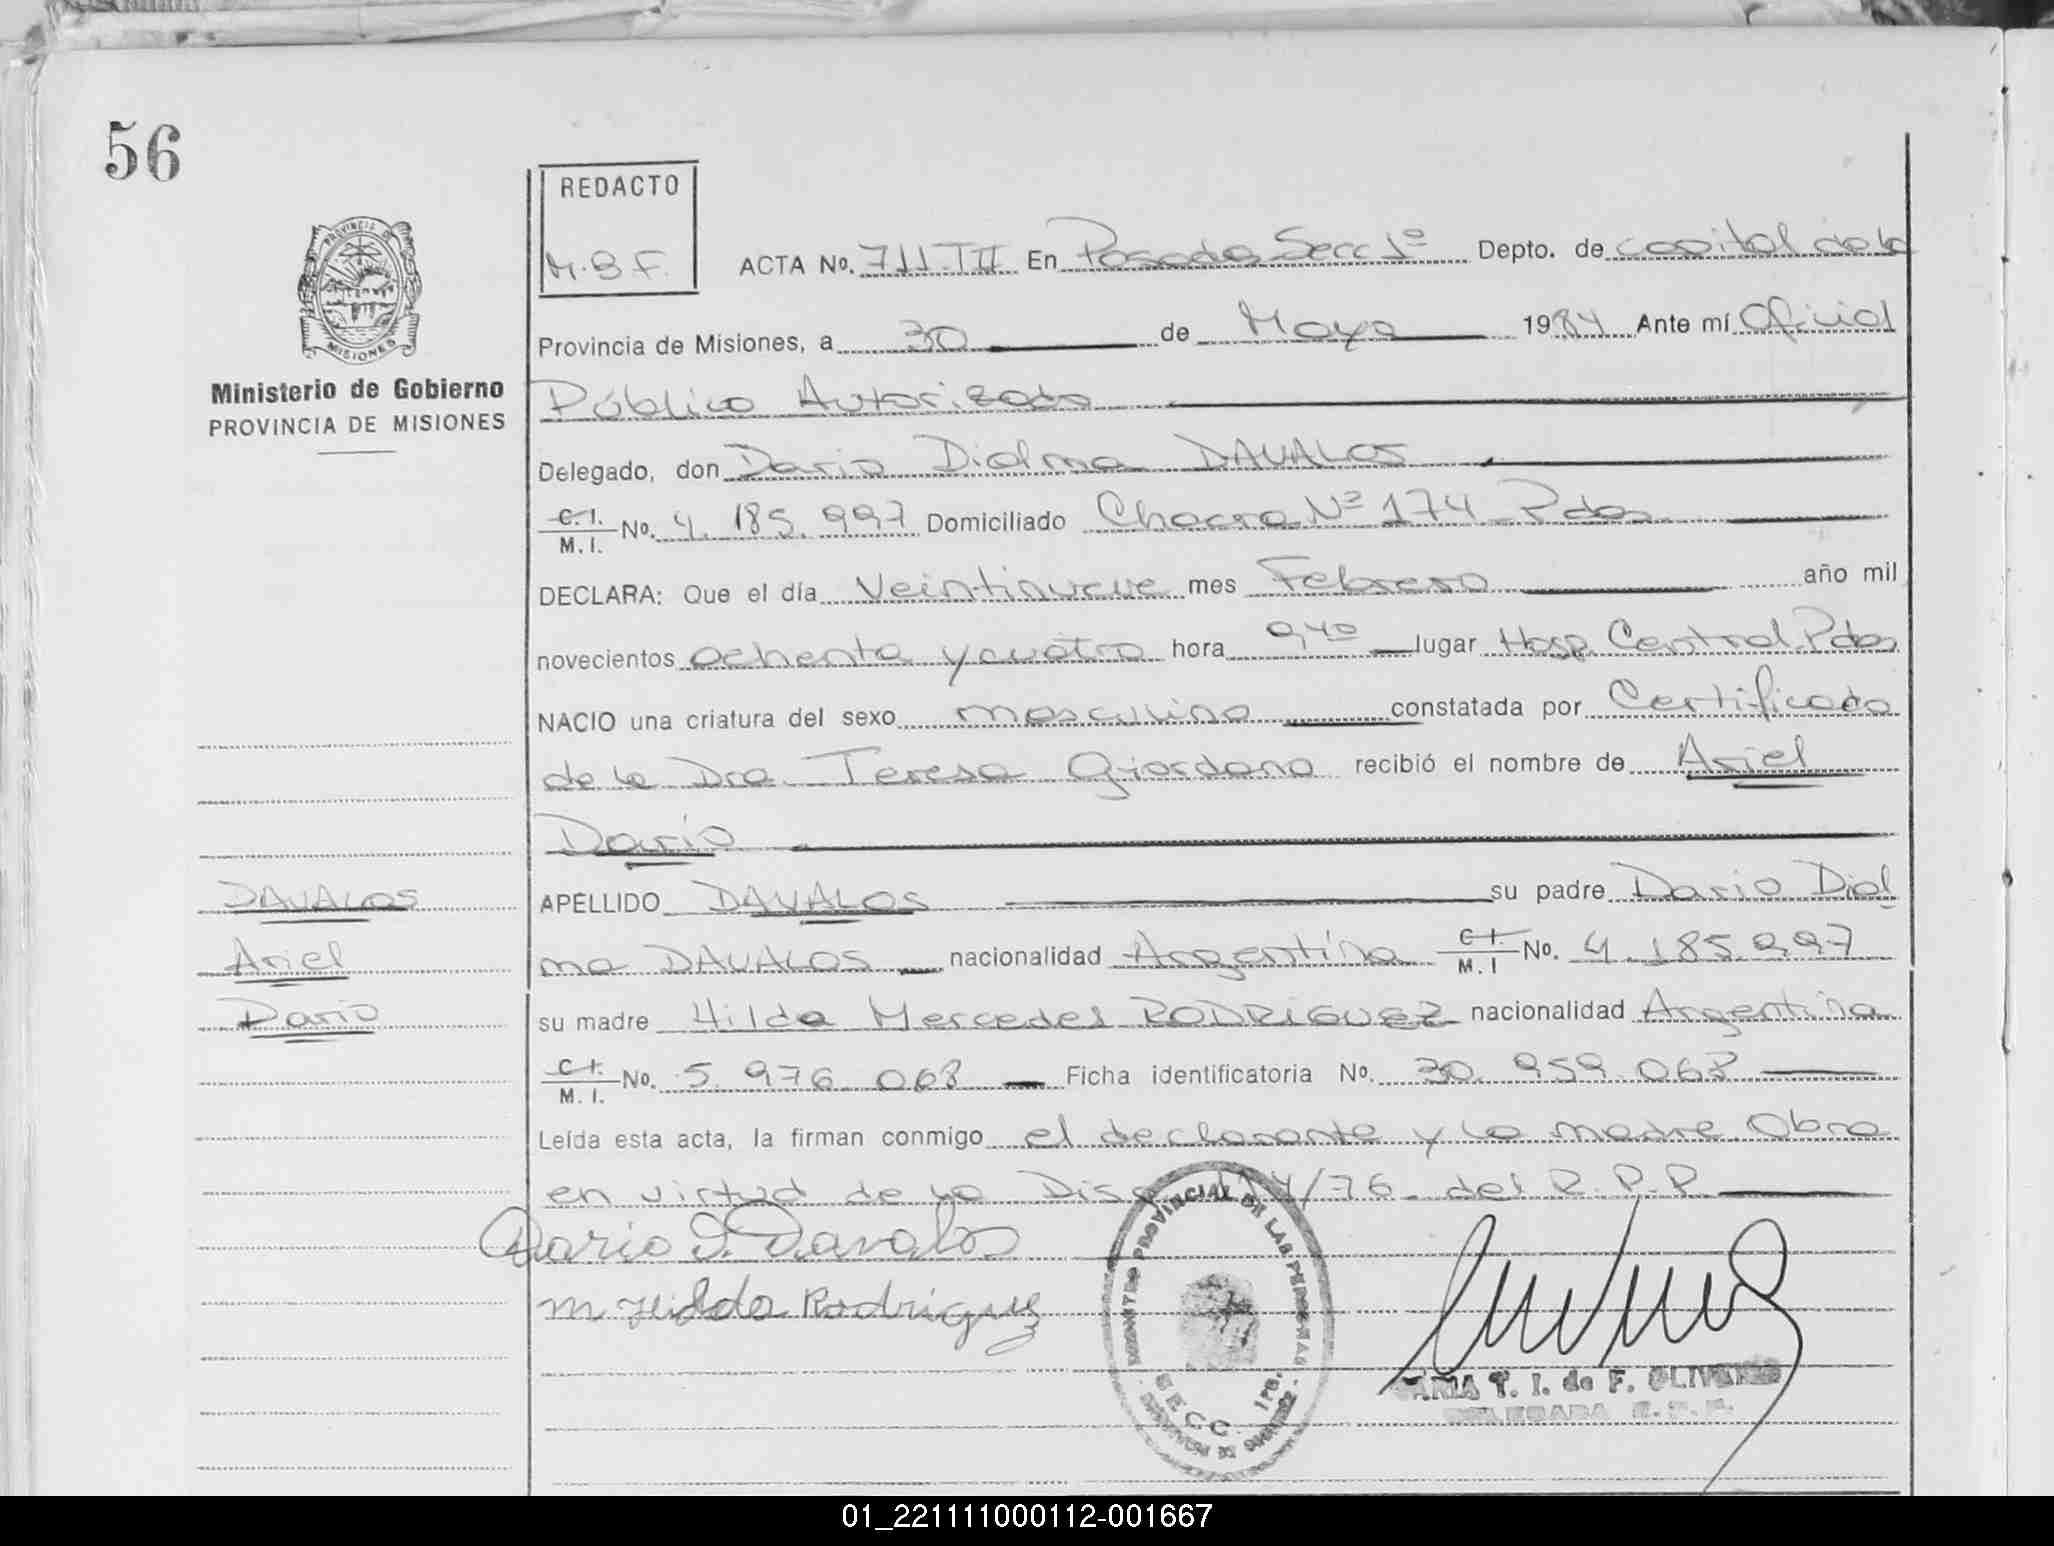 56
PROVINCIA D
MISIONES
Ministerio de Gobierno
PROVINCIA DE MISIONES
REDACTO
M.B F.
ACTA No. 711.TII En Posadas Secc 1º Depto. de capital de la
Provincia de Misiones, a 30 de Mayo 1984 Ante mí Oficial
Público Autorizado
Delegado, don Dario Dialma DAVALOS
C.I. M.I. No. 4.185.997 Domiciliado Chacra Nº 174 Pdas
DECLARA: Que el día Veintinueve mes Febrero año mil
novecientos ochenta y cuatro hora 9,40 lugar Hosp. Central. Pdas
NACIO una criatura del sexo masculino constatada por Certificado
de la Dra. Teresa Giordano recibió el nombre de Ariel
Dario
DAVALOS
APELLIDO DAVALOS su padre Dario Dial
Ariel
ma DAVALOS nacionalidad Argentina C.I. M.I No. 4.185.997
Dario
su madre Hilda Mercedes RODRIGUEZ nacionalidad Argentina
C.I. M.I. No. 5.976.068 Ficha identificatoria No. 30.959.068
Leída esta acta, la firman conmigo el declarante y la madre. Obra
en virtud de la Disp 114/76 del R.P.P.
Dario D. Davalos
M Hilda Rodriguez
REGISTRO PROVINCIAL DE LAS PERSONAS
SECC. 1ra.
MARIA T. I. de F. OLIVARES
DELEGADA R.P.P.
01_221111000112-001667